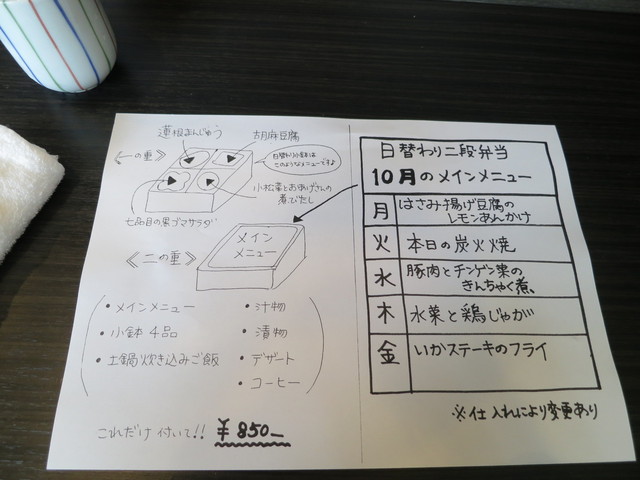 蓮根まんじゅう
胡麻豆腐
《一の重》
日替わり小鉢は
このようなメニューですよ
小松菜とおあげさんの
煮びたし
七品目の黒ゴマサラダ
《二の重》
メイン
メニュー
・メインメニュー
・小鉢 4品
・土鍋炊き込みご飯
・汁物
・漬物
・デザート
・コーヒー
これだけ付いて!!
¥850―
日替わり二段弁当
10月のメインメニュー
月 はさみ揚げ豆腐の
レモンあんかけ
火 本日の炭火焼
水 豚肉とチンゲン菜の
きんちゃく煮、
木 水菜と鶏じゃが
金 いかステーキのフライ
※仕入れにより変更あり